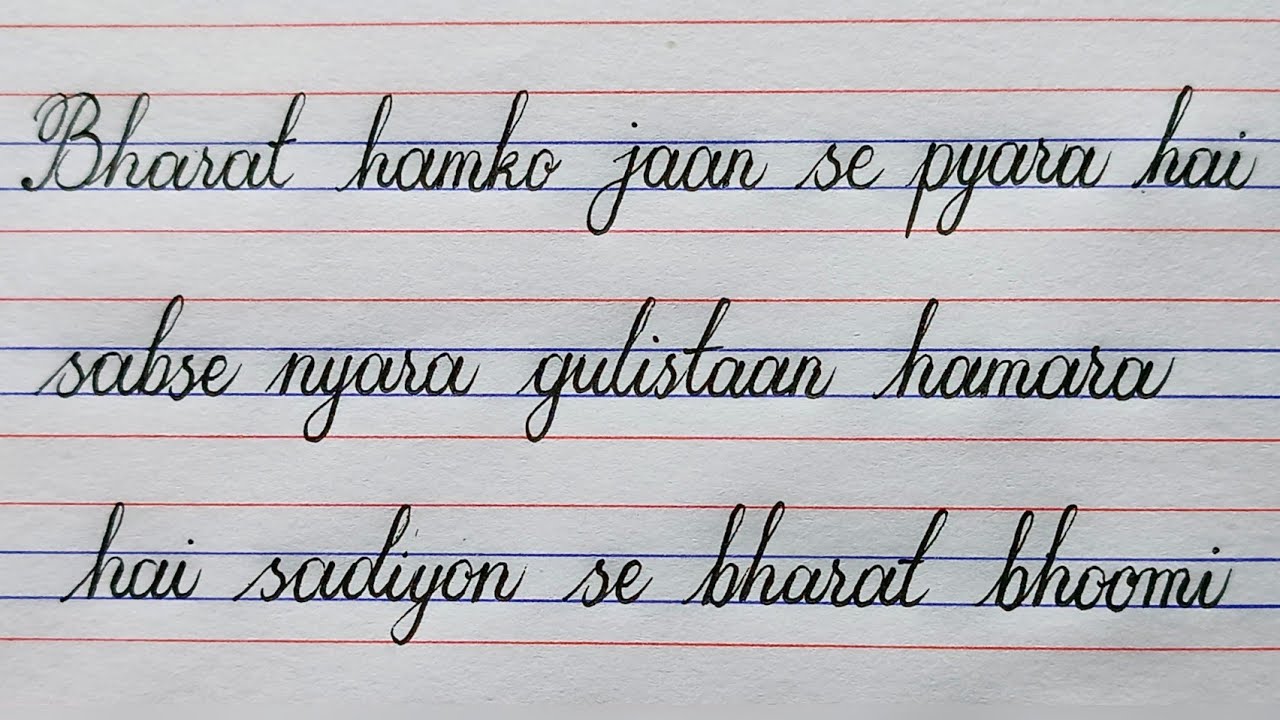 Bharat hamko jaan se pyara hai
sabse nyara gulistaan hamara
hai sadiyon se bharat bhoomi